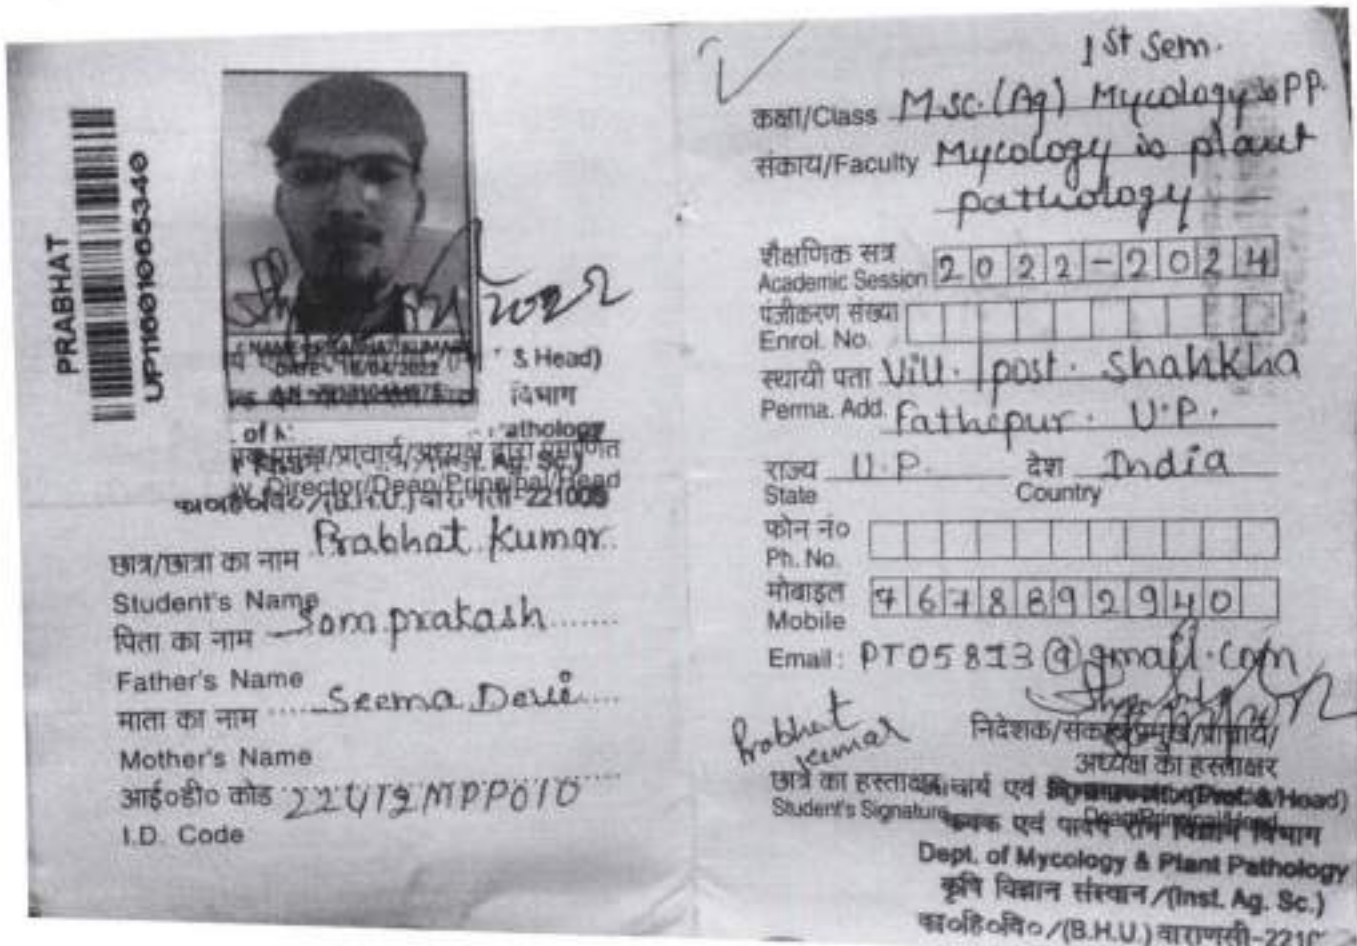 PRABHAT
UP1160101065340
2022
DATE - 16/04/2022
& Head)
विभाग
of
athology
प्रमुख/प्राचार्य/अध्यक्ष द्वारा प्रमाणित
Director/Dean/Principal/Head
का०हि०वि०/(B.H.U.) वाराणसी-221005
छात्र/छात्रा का नाम Prabhat Kumar
Student's Name
पिता का नाम Som prakash
Father's Name
माता का नाम Seema Devi
Mother's Name
आई०डी० कोड 22412MPP010
I.D. Code
1st Sem.
कक्षा/Class M.sc. (Ag) Mycology & PP.
संकाय/Faculty Mycology & plant
pathology
शैक्षणिक सत्र
Academic Session 2022-2024
पंजीकरण संख्या
Enrol. No.
स्थायी पता Vill. | post. Shahkha
Perma. Add. Fathepur. U.P.
राज्य U.P. देश India
State Country
फोन नं०
Ph. No.
मोबाइल 7678892940
Mobile
Email: PT05813@gmail.com
Prabhat
Kumar
निदेशक/संकाय प्रमुख/प्राचार्य/
अध्यक्ष का हस्ताक्षर
छात्र का हस्ताक्षर आचार्य एवं (Prof. & Head)
Student's Signature Dean/Principal/Head
कवक एवं पादप रोग विज्ञान विभाग
Dept. of Mycology & Plant Pathology
कृषि विज्ञान संस्थान/(Inst. Ag. Sc.)
का०हि०वि०/(B.H.U.) वाराणसी-2210